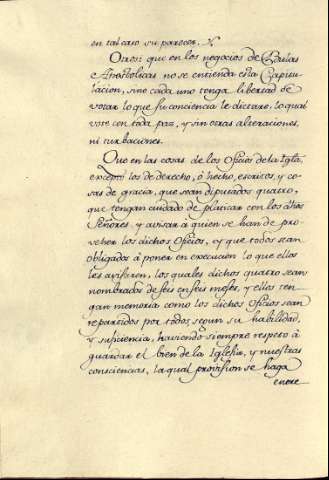 en tal caso su parecer.
Otrosi que en los negocios de Bulas
Apostolicas no se entienda esta Capitu-
lacion, sino cada uno tenga libertad de
votar lo que su conciencia le dictare, lo qual
vote con toda paz, y sin otras alteraciones,
ni turbaciones.
Que en las cosas de los Oficios de la Igla.
excepto los de derecho, ò hecho, escritos, y co-
sas de gracia, que sean diputados quatro,
que tengan cuidado de platicar con los dhôs
Señores, y avisar a quien se han de pro-
veher los dichos Oficios, y que todos sean
obligados à poner en execucion lo que ellos
les avisaren, los quales dichos quatro sean
nombrados de seis en seis meses, y ellos ten-
gan memoria como los dichos Oficios sean
repartidos por todos, segun su habilidad,
y suficiencia, haviendo siempre respeto à
guardar el bien de la Iglesia, y nuestras
consciencias, la qual provision se haga
entre